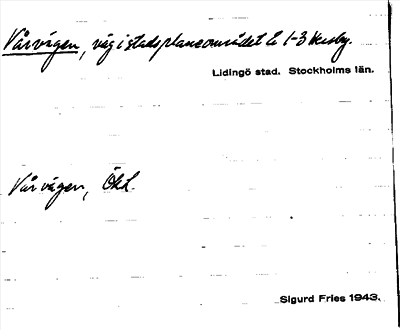 Vårvägen, väg i stadsplaneområdet L 1-3 Hersby.
Lidingö stad. Stockholms län.
Vårvägen, ÖkL.
Sigurd Fries 1943.